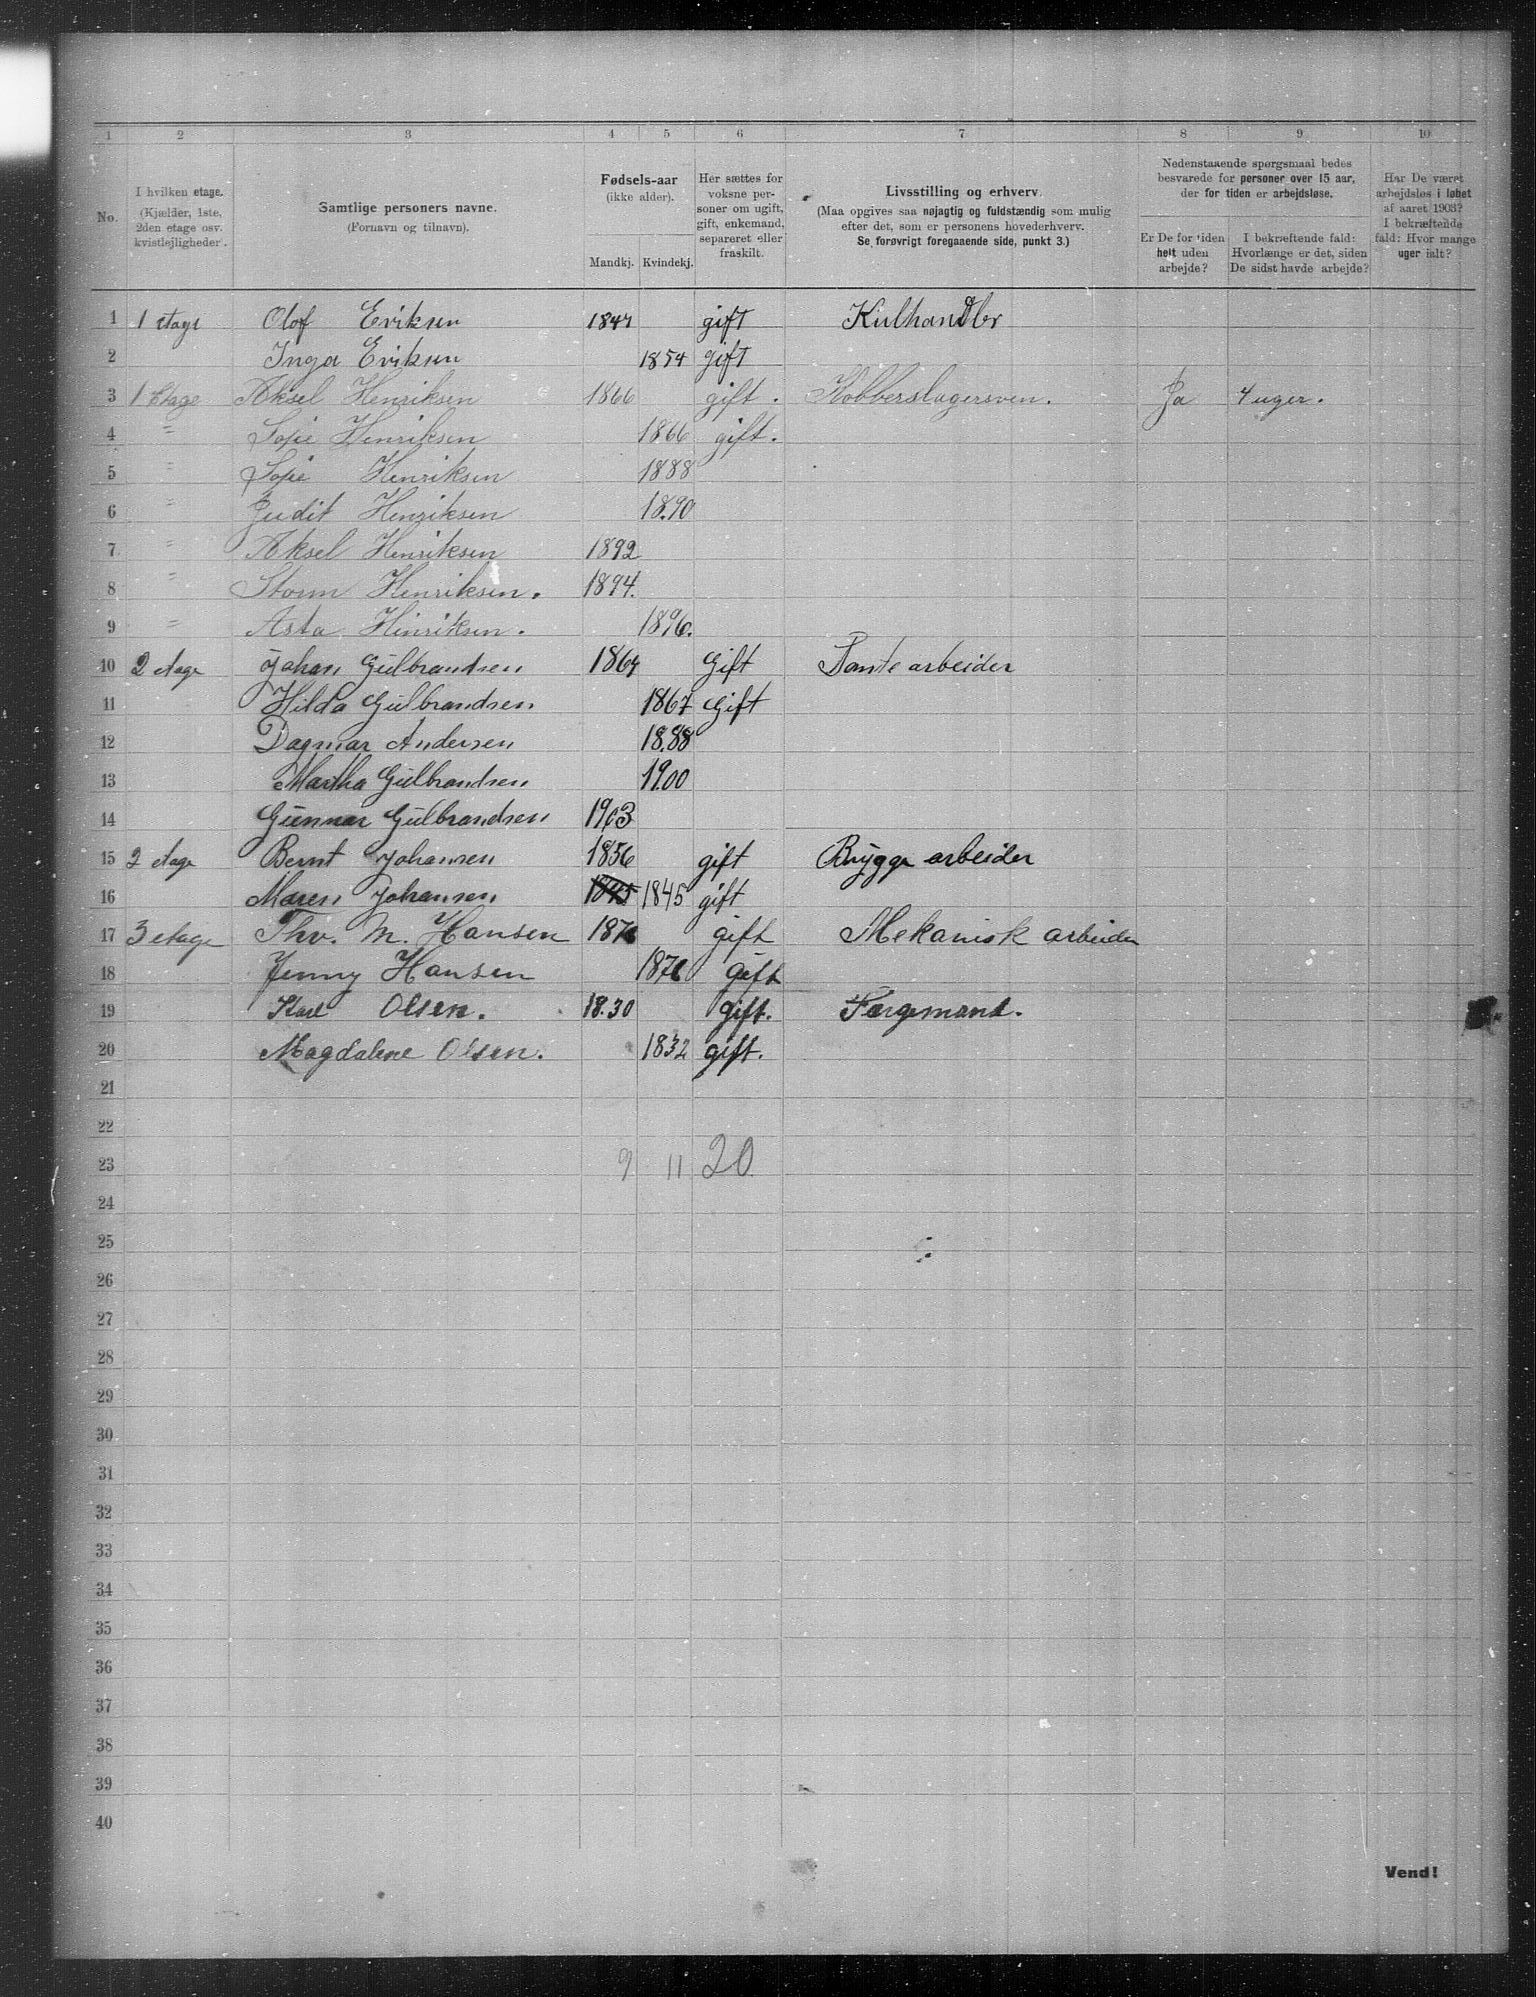 1 2 3 4 5 6 7 8 9 10
No.
I hvilken etage. (Kjælder, 1ste, 2den etage osv. kvistlejligheder.
Samtlige personers navne. (Fornavn og tilnavn).
Fødsels-aar (ikke alder). Mandkj. Kvindekj.
Her sættes for voksne personer om ugift, gift, enkemand, separeret eller fraskilt.
Livsstilling og erhverv. (Maa opgives saa nøjagtig og fuldstændig som mulig efter det, som er personens hovederhverv. Se forøvrigt foregaaende side, punkt 3.)
Nedenstaaende spørgsmaal bedes besvarede for personer over 15 aar, der for tiden er arbejdsløse.
Er De for tiden helt uden arbejde?
I bekræftende fald: Hvorlænge er det, siden De sidst havde arbejde?
Har De været arbejdsløs i løbet af aaret 1903? I bekræftende fald: Hvor mange uger ialt?
1 1 etage Olof Eriksen 1847 gift Kulhandler
2 Inga Eriksen 1854 gift
3 1 Etage Aksel Henriksen 1866 gift. Kobberslagersven. Ja 4 uger.
4 " Sofie Henriksen 1866 gift.
5 " Sofie Henriksen 1888
6 " Judit Henriksen 1890
7 " Aksel Henriksen 1892
8 " Storm Henriksen. 1894.
9 " Asta Hinriksen. 1896.
10 2 etage Johan Gulbrandsen 1864 Gift arbeider
11 Hilda Gulbrandsen 1867 Gift
12 Dagmar Andersen 1888
13 Martha Gulbrandsen 1900
14 Gunnar Gulbrandsen 1903
15 2 etage Bernt Johansen 1856 gift Brygge arbeider
16 Maren Johansen 1845 1845 gift
17 3 etage Thv. M. Hansen gift Mekanisk arbeider
18 Jenny Hansen 1876 gift
19 Karl Olsen. 18.30 gift. Færgemand.
20 Magdalene Olsen. 1832 gift.
21
22
23 9 11 20
24
25
26
27
28
29
30
31
32
33
34
35
36
37
38
39
40
Vend!